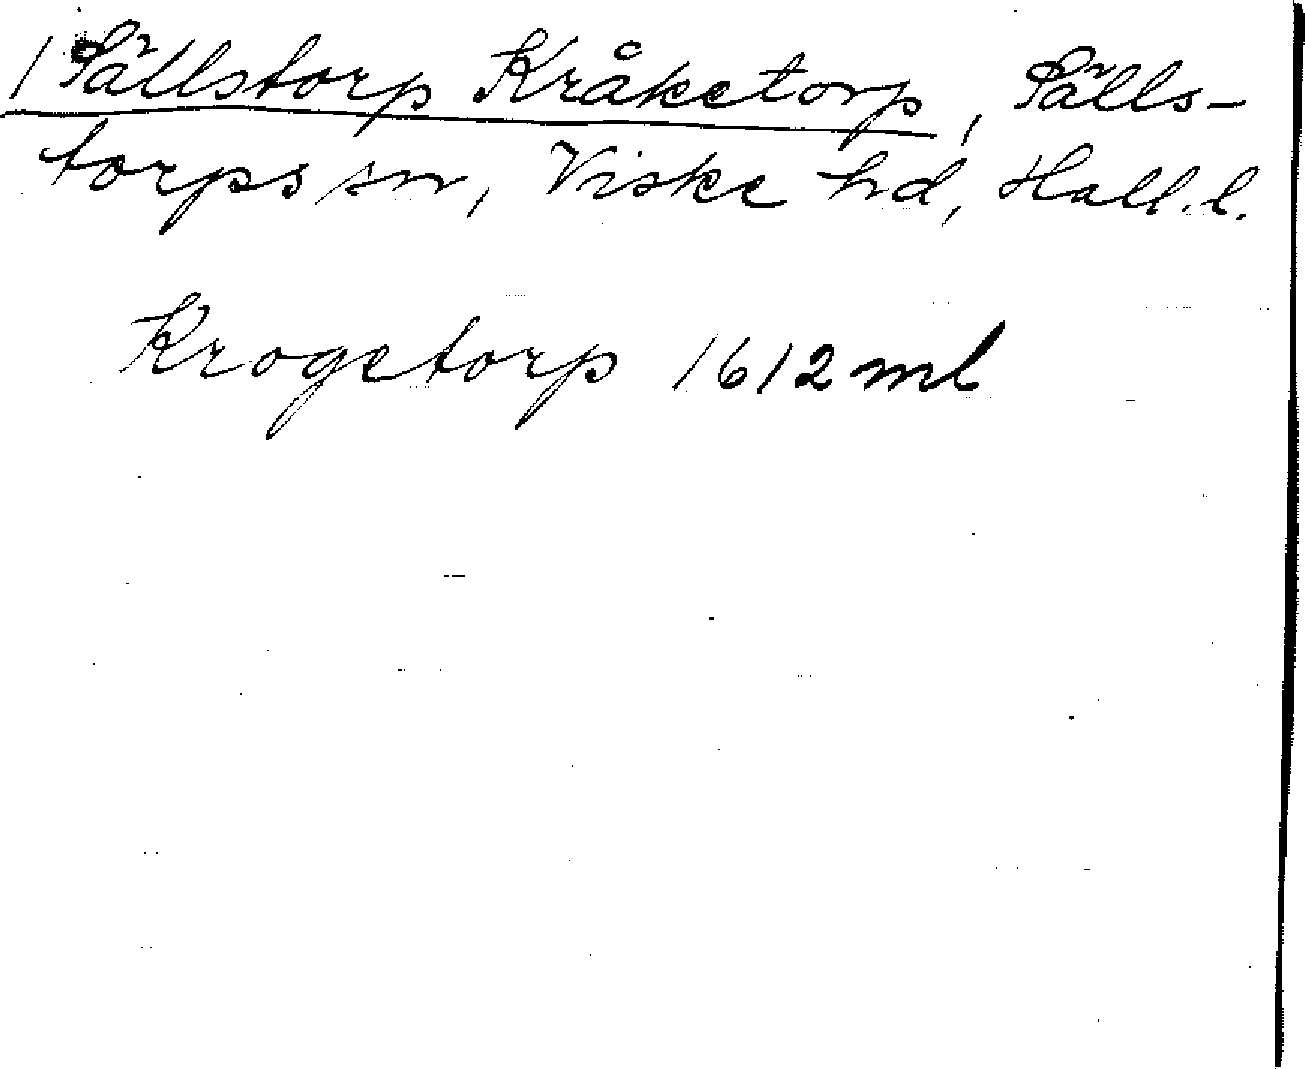 1 Pällstorp Kråketorp, Pälls-
torps sn, Viske hd, Hall. l.
Krogetorp 1612 ml